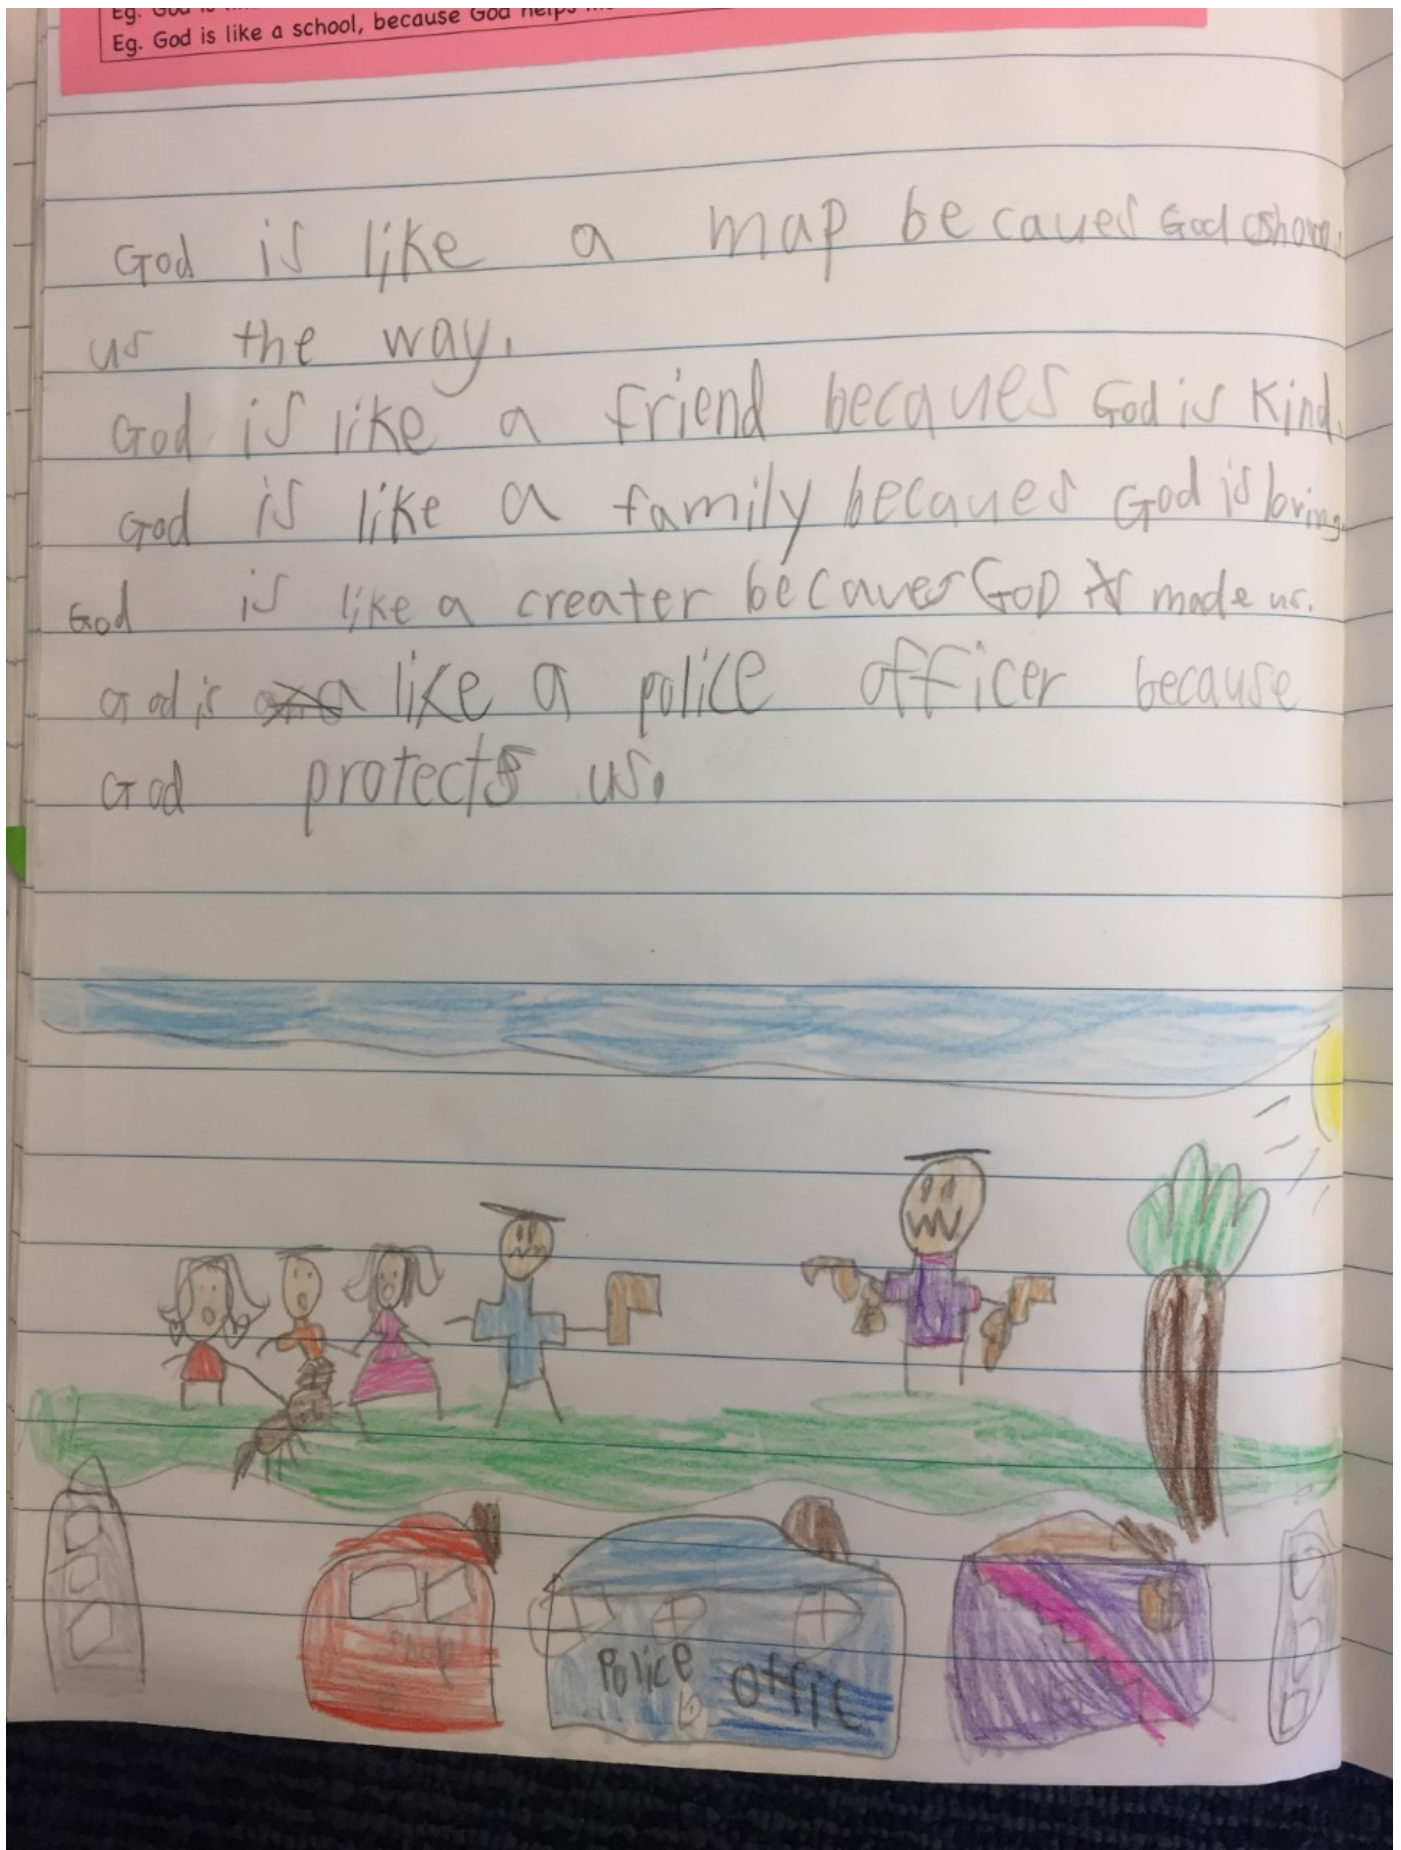 Eg. God is
Eg. God is like a school, because God helps
God is like a map becaues God shows
us the way.
God is like a friend becaues God is Kind.
God is like a family becaues God is loving
God is like a creater becaues GOD made us.
God is like a police officer because
God protects us.
Shop
Police Offic